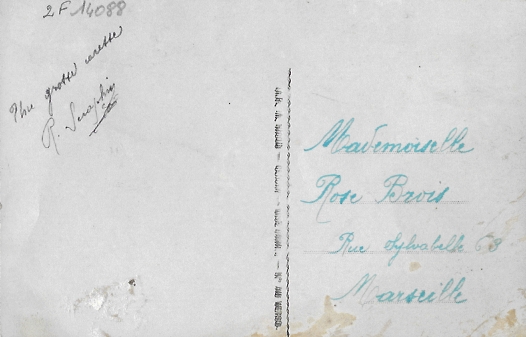 2F 14088
Une grosse caresse
R. Seraphin
Mademoiselle
Rose Brois
Rue Sylvabelle 63
Marseille